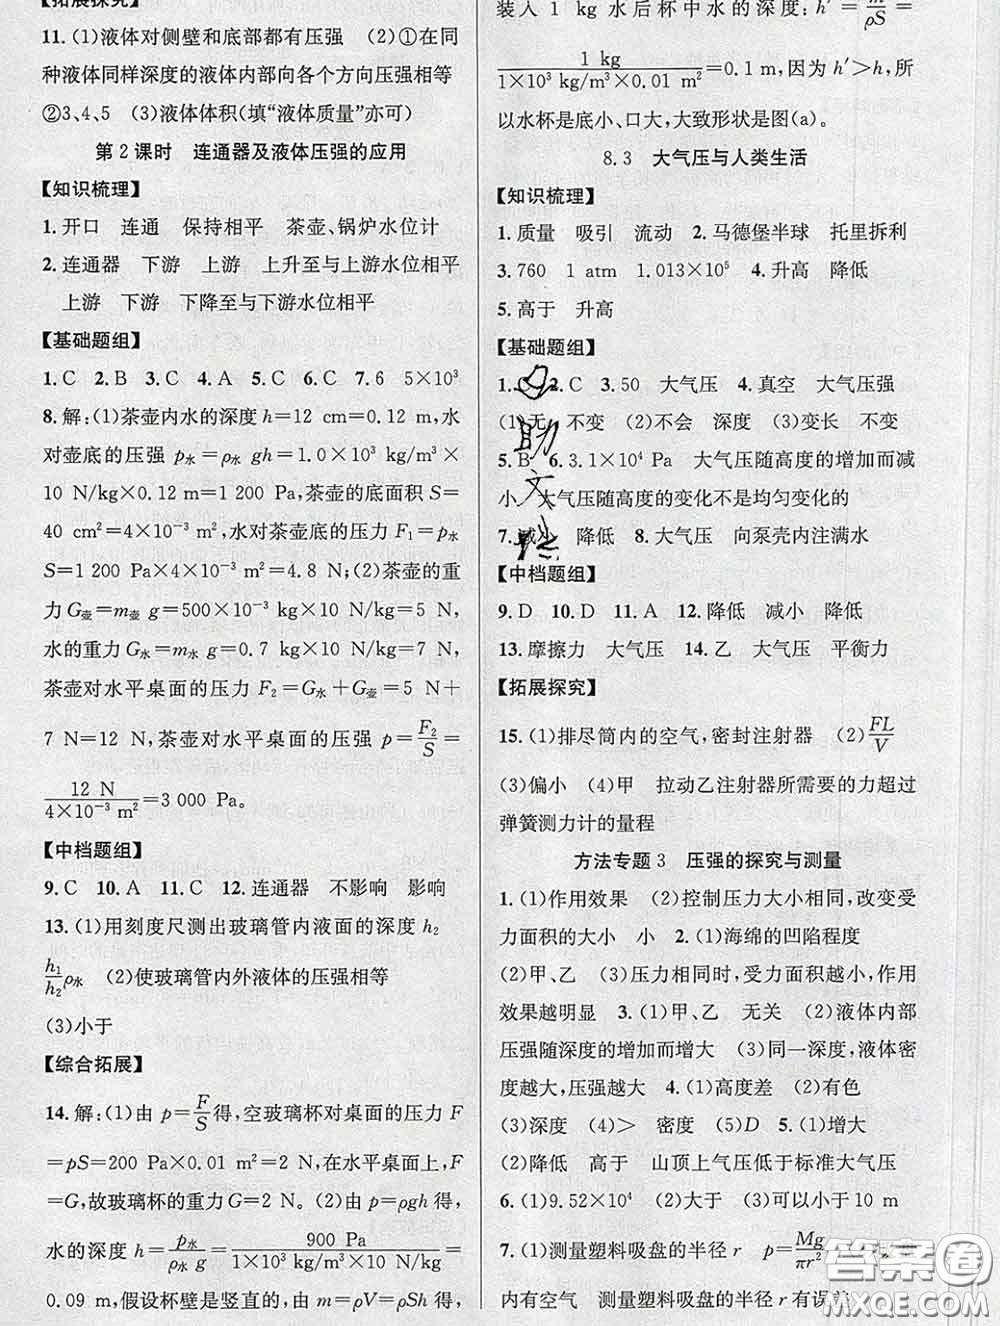 【拓展探究】
11. (1)液体对侧壁和底部都有压强　(2)①在同
种液体同样深度的液体内部向各个方向压强相等
②3、4、5　(3)液体体积(填“液体质量”亦可)
第2课时　连通器及液体压强的应用
【知识梳理】
1. 开口　连通　保持相平　茶壶、锅炉水位计
2. 连通器　下游　上游　上升至与上游水位相平
上游　下游　下降至与下游水位相平
【基础题组】
1. C　2. B　3. C　4. A　5. C　6. C　7. 6　5×10³
8. 解：(1)茶壶内水的深度 h=12 cm=0.12 m，水
对壶底的压强 p水=ρ水 gh=1.0×10³ kg/m³×
10 N/kg×0.12 m=1 200 Pa，茶壶的底面积 S=
40 cm²=4×10⁻³ m²，水对茶壶底的压力 F₁=p水
S=1 200 Pa×4×10⁻³ m²=4.8 N；(2)茶壶的重
力 G壶=m壶 g=500×10⁻³ kg×10 N/kg=5 N，
水的重力 G水=m水 g=0.7 kg×10 N/kg=7 N，
茶壶对水平桌面的压力 F₂=G水+G壶=5 N+
7 N=12 N，茶壶对水平桌面的压强 p=F₂/S=
12 N/(4×10⁻³ m²)=3 000 Pa。
【中档题组】
9. C　10. A　11. C　12. 连通器　不影响　影响
13. (1)用刻度尺测出玻璃管内液面的深度 h₂
h₁/h₂ ρ水　(2)使玻璃管内外液体的压强相等
(3)小于
【综合拓展】
14. 解：(1)由 p=F/S 得，空玻璃杯对桌面的压力 F
=pS=200 Pa×0.01 m²=2 N，在水平桌面上，F
=G，故玻璃杯的重力 G=2 N。(2)由 p=ρgh 得，
水的深度 h=p水/(ρ水 g)=900 Pa/(1×10³ kg/m³×10 N/kg)=
0.09 m，假设杯壁是竖直的，由 m=ρV=ρSh 得，
装入 1 kg 水后杯中水的深度：h′=m/(ρS)=
1 kg/(1×10³ kg/m³×0.01 m²)=0.1 m，因为 h′>h，所
以水杯是底小、口大，大致形状是图(a)。
8.3　大气压与人类生活
【知识梳理】
1. 质量　吸引　流动　2. 马德堡半球　托里拆利
3. 760　1 atm　1.013×10⁵　4. 升高　降低
5. 高于　升高
【基础题组】
1.　2. C　3. 50　大气压　4. 真空　大气压强
(1)无　不变　(2)不会　深度　(3)变长　不变
5. B　6. 3.1×10⁴ Pa　大气压随高度的增加而减
小　大气压随高度的变化不是均匀变化的
7. 减小　降低　8. 大气压　向泵壳内注满水
【中档题组】
9. D　10. D　11. A　12. 降低　减小　降低
13. 摩擦力　大气压　14. 乙　大气压　平衡力
【拓展探究】
15. (1)排尽筒内的空气，密封注射器　(2)FL/V
(3)偏小　(4)甲　拉动乙注射器所需要的力超过
弹簧测力计的量程
方法专题3　压强的探究与测量
1. (1)作用效果　(2)控制压力大小相同，改变受
力面积的大小　小　2. (1)海绵的凹陷程度
(2)甲、乙　(3)压力相同时，受力面积越小，作用
效果越明显　3. (1)甲、乙　无关　(2)液体内部
压强随深度的增加而增大　(3)同一深度，液体密
度越大，压强越大　4. (1)高度差　(2)有色
(3)深度　(4)>　密度　(5)D　5. (1)增大
(2)降低　高于　山顶上气压低于标准大气压
6. (1)9.52×10⁴　(2)大于　(3)可以小于 10 m
7. (1)测量塑料吸盘的半径 r　p=Mg/πr²
内有空气　测量塑料吸盘的半径 r 有误差
答案圈
MXQE.COM